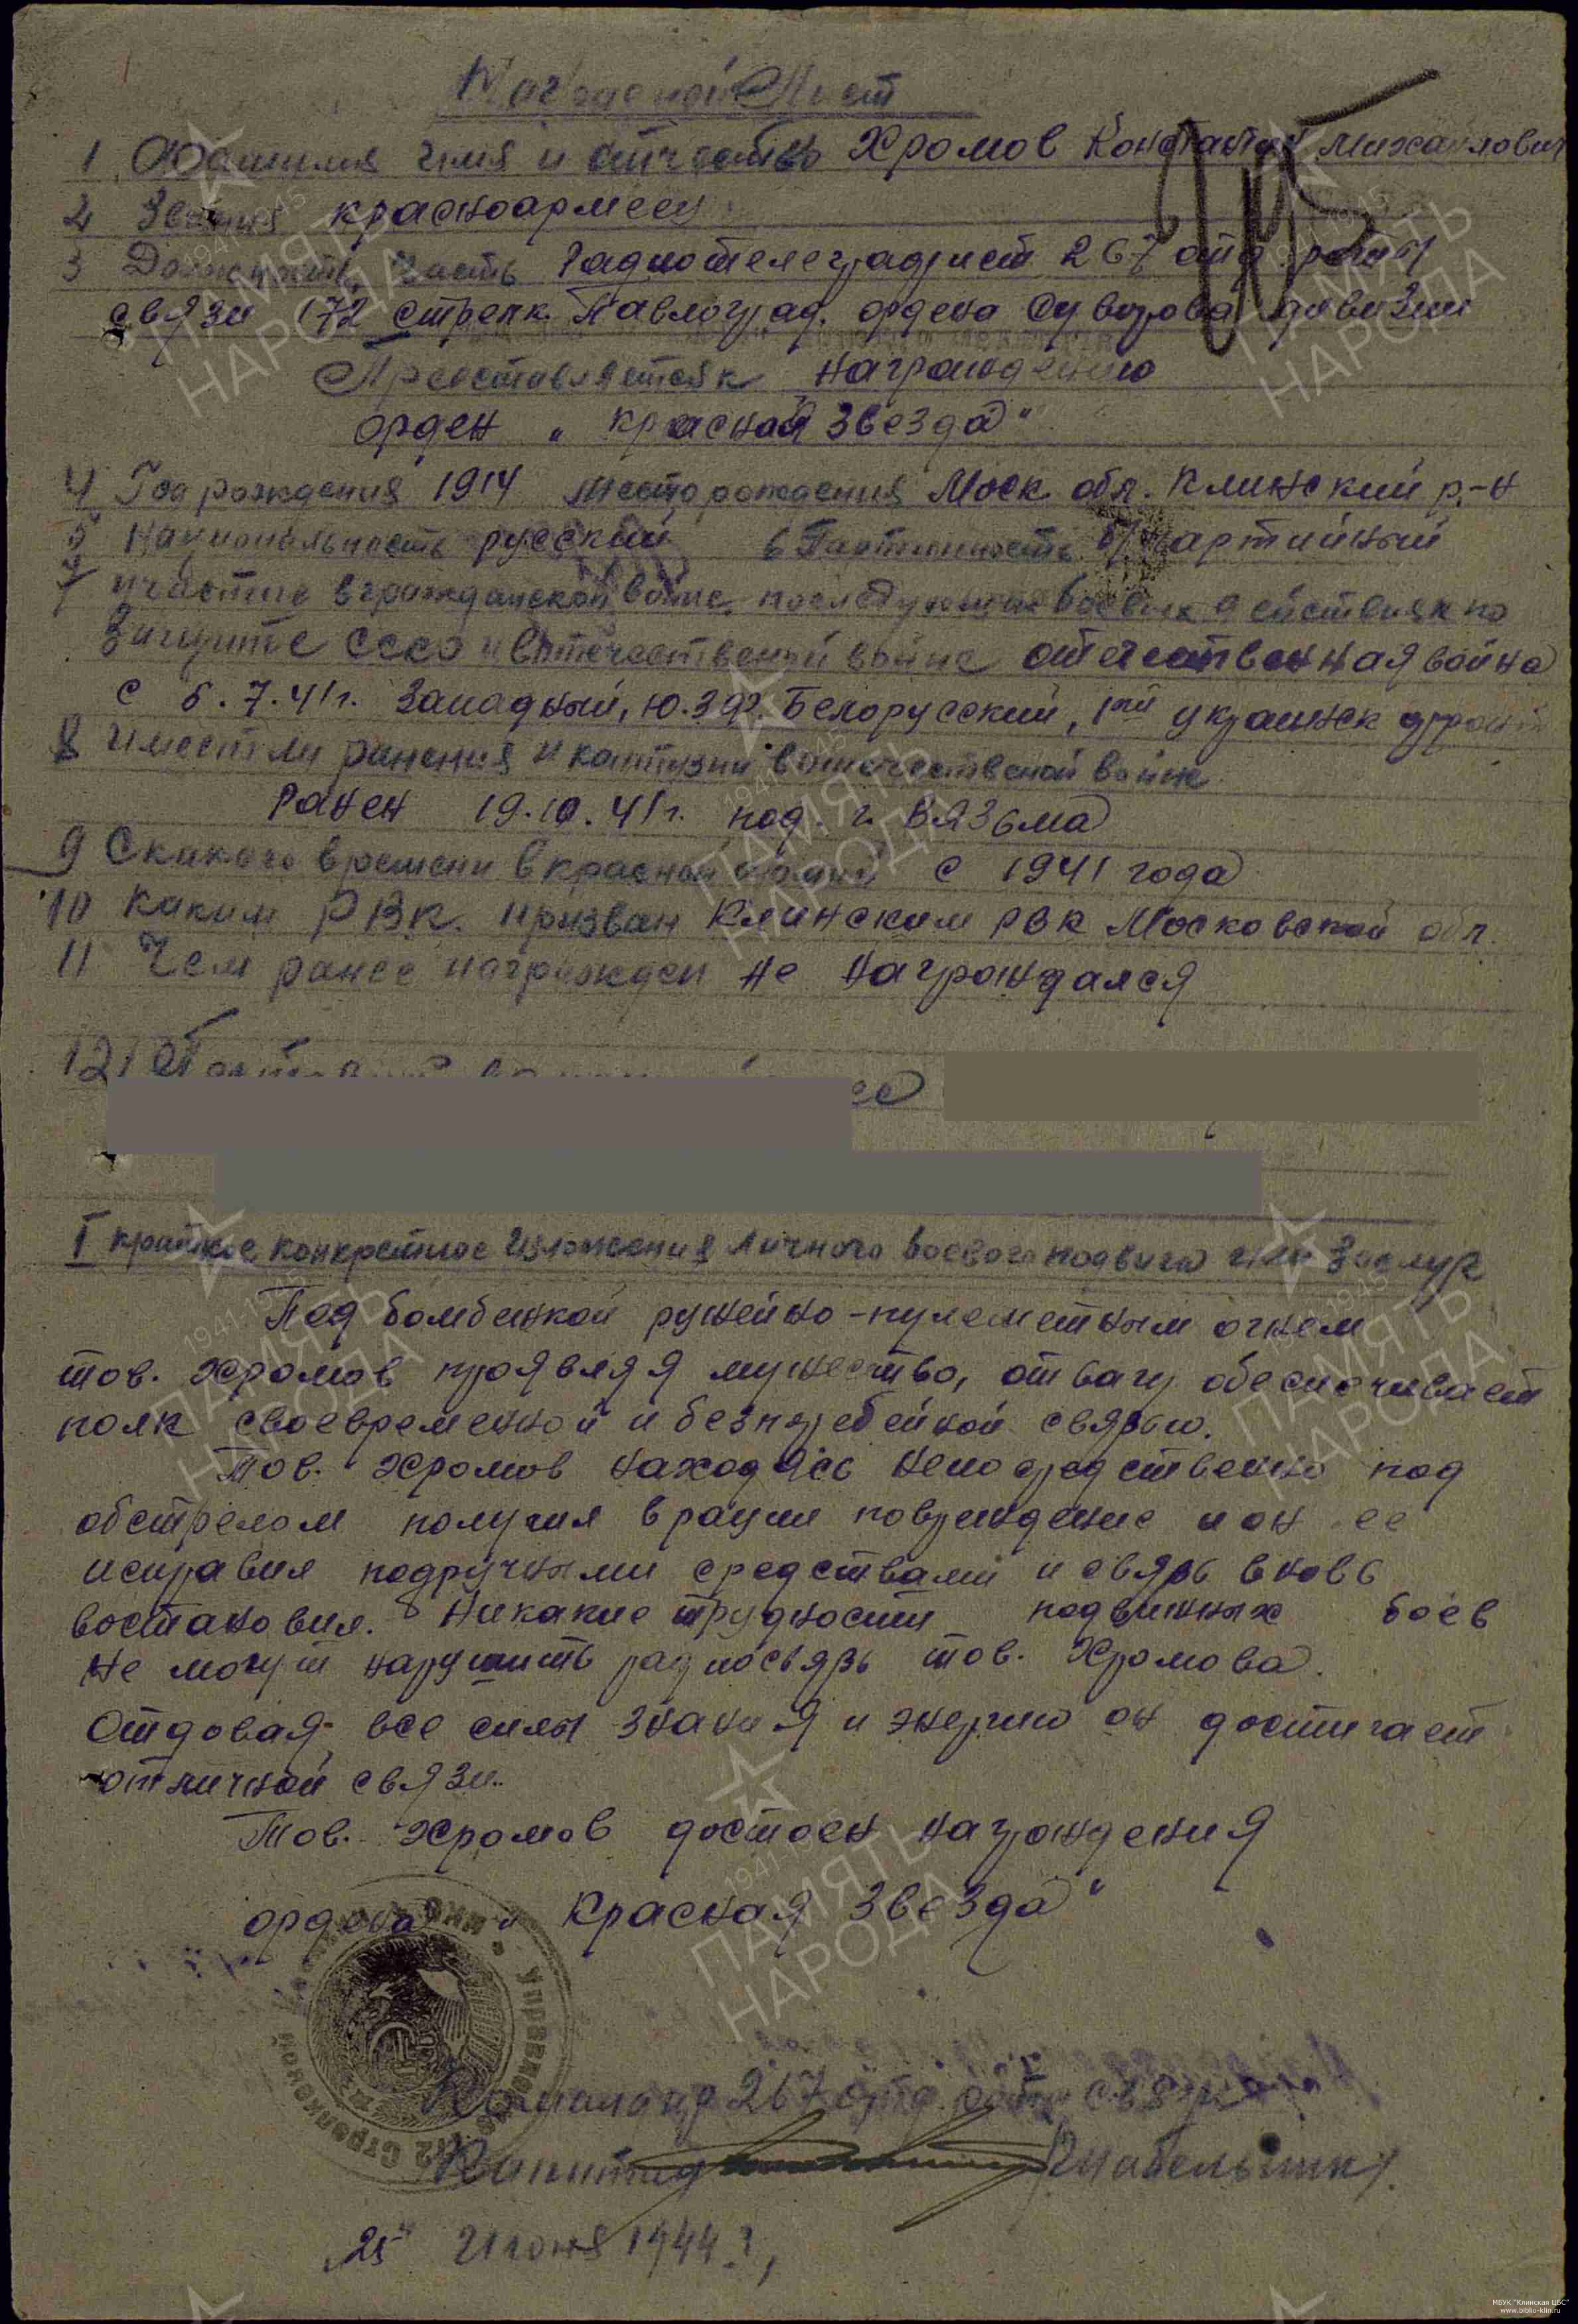 Наградной Лист
1 Фамилия Имя и отчество Хромов Константин Михайлович
2 Звания красноармеец
3 Должность, часть Радиотелеграфист 267 отд. роты
связи 172 стрелк. Павлоград. ордена Суворова дивизии
Представляется к награждению
орден „Красной Звезда"
4 Год рождения 1914 место рождения Моск. обл. Клинский р-н
5 Национальность русский 6 Партийность б/партийный
7 участие в гражданской войне, последующих боевых действиях по
защите СССР и в отечественной войне отечественная война
с 5.7.41г. Западный, Ю.З.Ф. Белорусский, 1ый украинск фронт
8 Имеет ли ранения и контузии в отечественой войне
Ранен 19.10.41г. под г. Вязьма
9 С какого времени в красной армии с 1941 года
10 Каким РВК. призван Клинским РВК Московской обл.
11 Чем ранее награжден не награждался
12
I краткое конкретное изложения личного боевого подвига или заслуг
Под бомбежкой ружейно-пулеметным огнем
тов. Хромов проявляя мужество, отвагу обеспечивает
полк своевременной и безперебейной связью.
Тов. Хромов находясь непосредственно под
обстрелом получил в рации повреждение и он ее
исправил подручными средствами и связь вновь
востановил. Никакие трудности подвижных боев
не могут нарушить радиосвязь тов. Хромова.
Отдовая все силы знания и энергию он достигает
отличной связи.
Тов. Хромов достоен награждения
ордена „Красная Звезда"
Командир 267 отд. роты связи
Капитан
„25" Июня 1944 г.,
ПАМЯТЬ НАРОДА
1941-1945
МБУК "Клинская ЦБС"
www.biblio-klin.ru